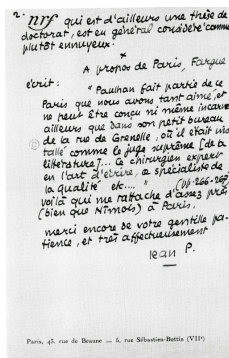 2.
nrf qui est d'ailleurs une thèse de
doctorat, est en général considéré comme
plutôt ennuyeux.
×
A propos de Paris, Fargue
écrit :
" Paulhan fait partie de ce
Paris que nous avons tant aimé, et
ne peut être conçu ni même incarné
ailleurs que dans son petit bureau
de la rue de Grenelle, où il était ins
tallé comme le juge suprême [de la
littérature]... Ce chirurgien expert
en l'art d'écrire, ce spécialiste de
la qualité etc.... " (pp. 266-268)
voilà qui me rattache d'assez près
(bien que Nîmois) à Paris.
merci encore de votre gentille pa-
tience, et très affectueusement
Jean P.
Paris, 43, rue de Beaune — 5, rue Sébastien-Bottin (VIIe)